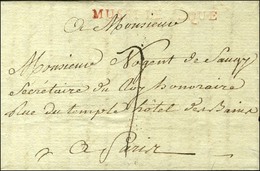 MU QUE
a Monsieur
Monsieur Nogent de
Secrétaire du Roy honoraire
rue du temple hôtel des Bains
a Paris